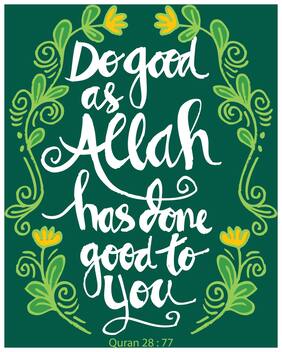 Do good
as
Allah
has done
good to
you
Quran 28 : 77